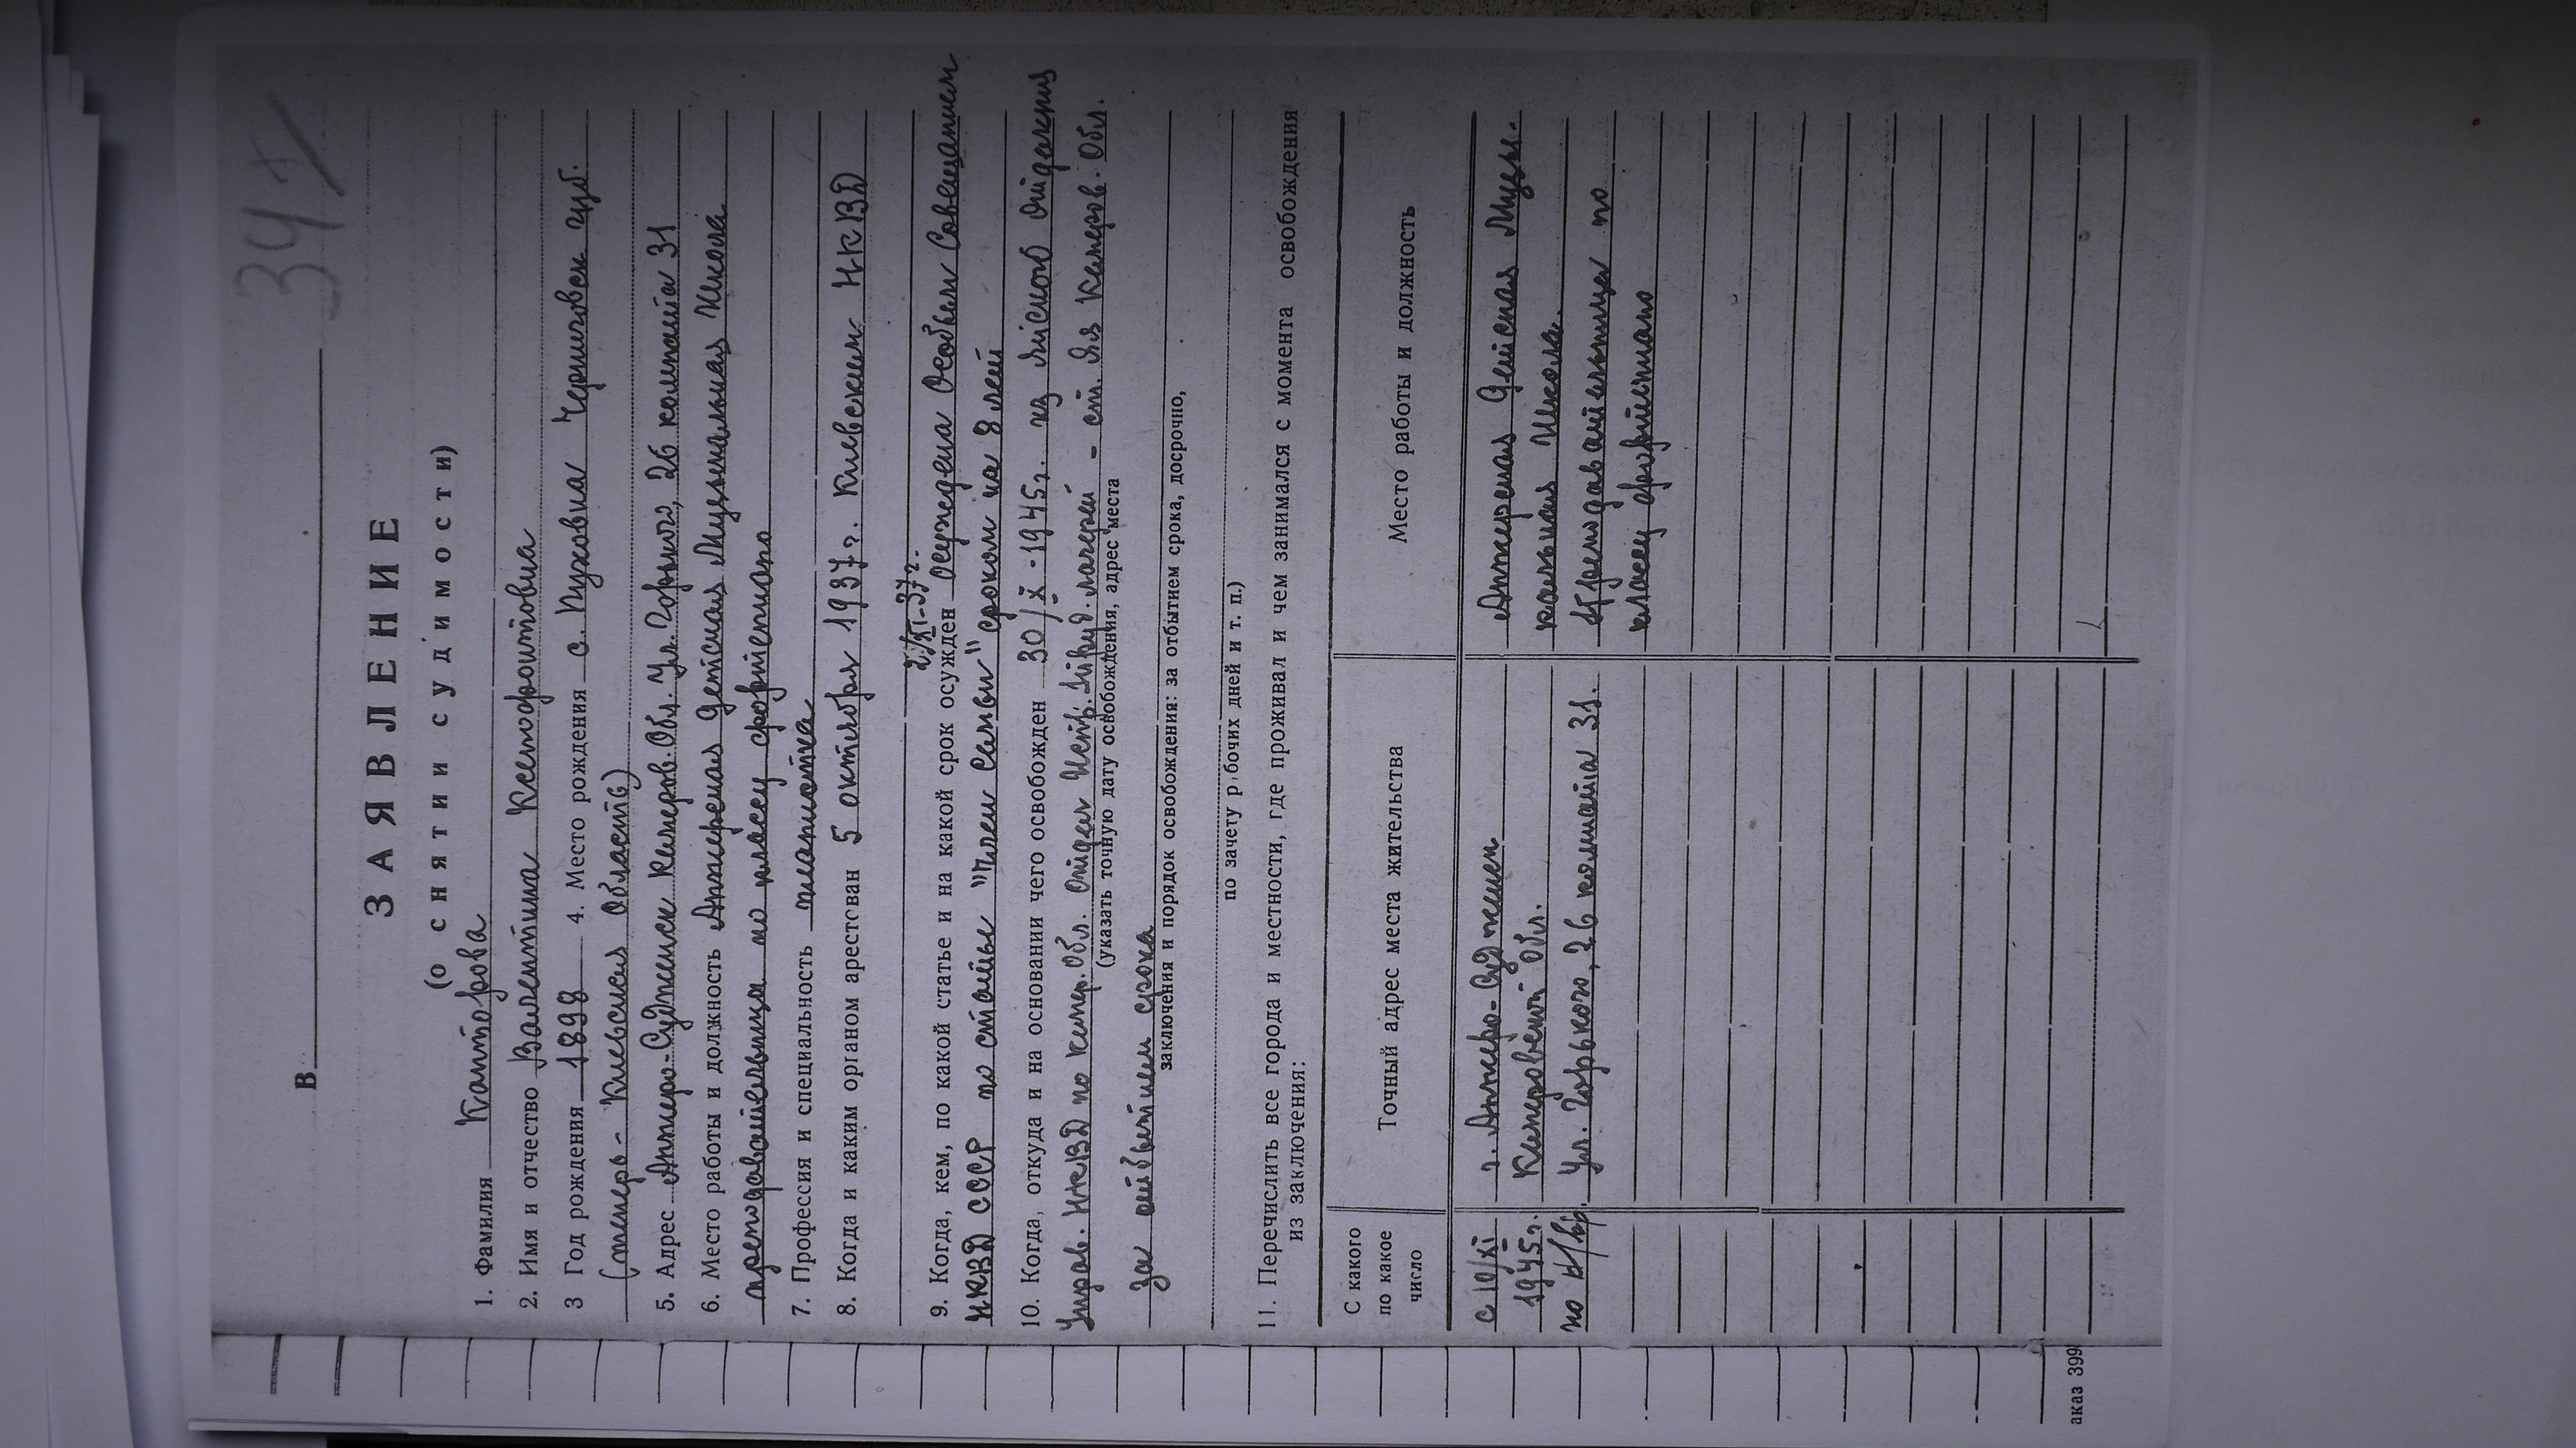 347
В
ЗАЯВЛЕНИЕ
(о снятии судимости)
1. Фамилия Канторова
2. Имя и отчество Валентина Ксенофонтовна
3 Год рождения 1898 4. Место рождения с. Пуховка Черниговск губ.
(теперь - Киевская Область)
5. Адрес Анжеро-Судженск Кемеров. Обл. Ул. Горького, 26 комната 31
6. Место работы и должность Анжерская Детская Музыкальная Школа
преподавательница по классу фортепиано
7. Профессия и специальность пианистка
8. Когда и каким органом арестован 5 октября 1937 г. Киевским НКВД
2/XI-37 г.
9. Когда, кем, по какой статье и на какой срок осужден осуждена Особым Совещанием
НКВД СССР по статье "Член семьи" сроком на 8 лет
10. Когда, откуда и на основании чего освобожден 30/X-1945 г. из отделения
Управ. НКВД по Кемер. Обл. лагерей - ст. Яя Кемеров. Обл.
(указать точную дату освобождения, адрес места
За отбытием срока
заключения и порядок освобождения: за отбытием срока, досрочно,
по зачету рабочих дней и т. п.)
11. Перечислить все города и местности, где проживал и чем занимался с момента освобождения
из заключения:
С какого по какое число
Точный адрес места жительства
Место работы и должность
с 10/XI г. Анжеро-Судженск Анжерская Детская Музы-
1945 г. Кемеровской Обл. кальная Школа.
по н/вр. Ул. Горького, 26 комната 31. Преподавательница по
классу фортепиано
аказ 399